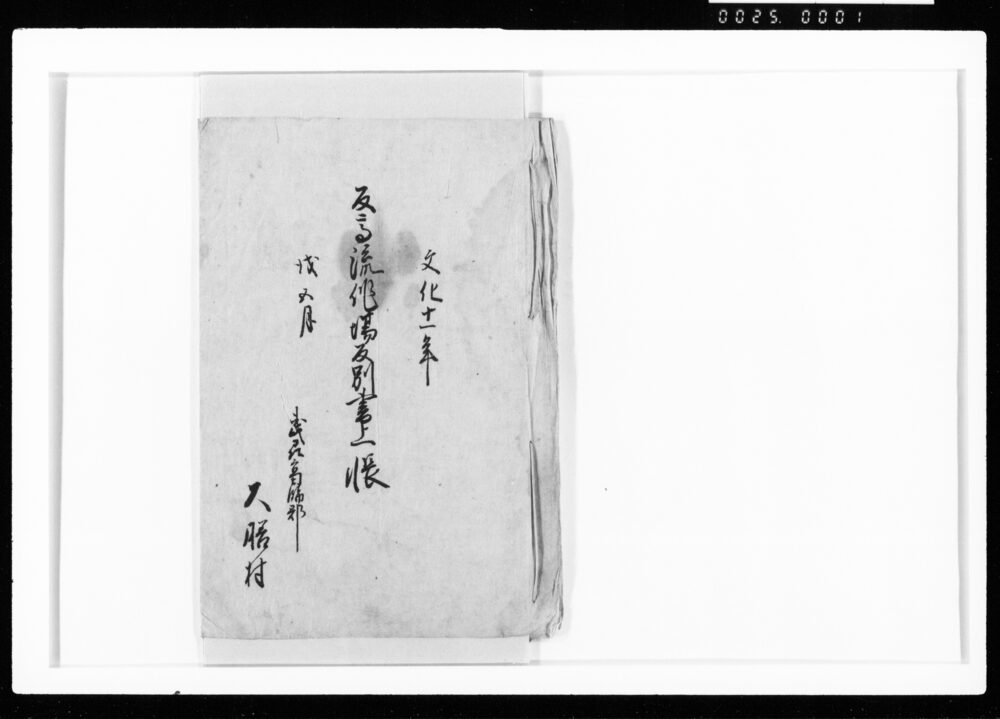 0025.0001
文化十一年
反高流作場反別書上帳
戌五月
武州葛飾郡
大膳村